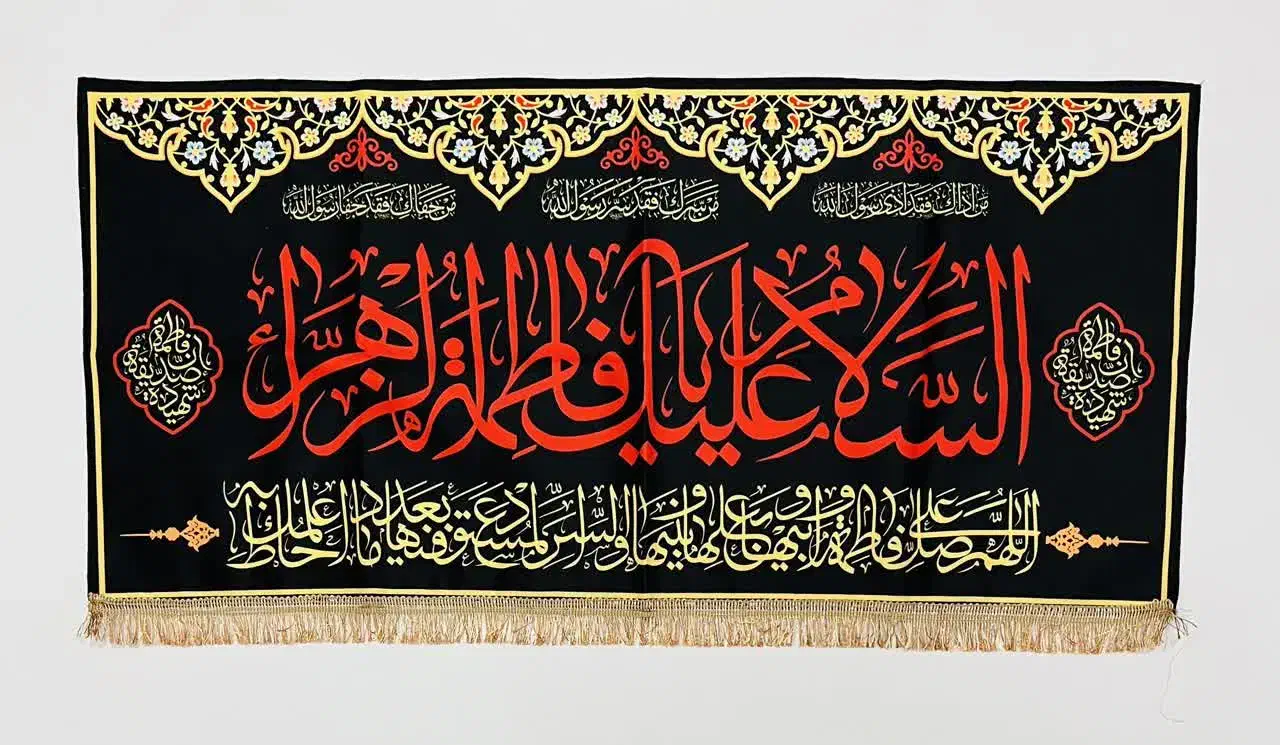 من آذاك فقد آذى رسول الله
من سرك فقد سر رسول الله
من جفاك فقد جفا رسول الله
السلام عليك يا فاطمة الزهراء
إن فاطمة صديقة شهيدة
إن فاطمة صديقة شهيدة
اللهم صل على فاطمة و ابيها و بعلها و بنيها و السر المستودع فيها بعدد ما احاط به علمك